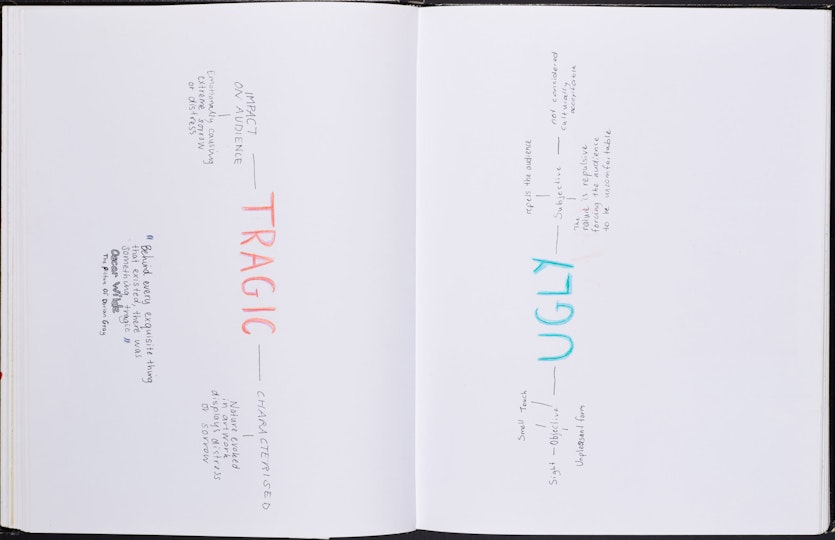 IMPACT
ON AUDIENCE
Emotionally causing
extreme sorrow
or distress
TRAGIC
CHARACTERISED
Nature evoked
in artwork
displays distress
or sorrow
" Behind every exquisite thing
that existed, there was
something tragic "
Oscar Wilde
The Picture Of Dorian Gray
UGLY
Subjective
not considered
culturally
acceptable
repels the audience
The
nature is repulsive
forcing the audience
to be uncomfortable
Objective
Smell Touch
Sight
Unpleasant form